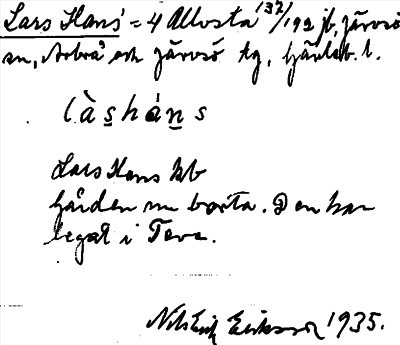 Lars Hans' = 4 Allvsta 137/192 jb, Järvsö
sn, Arbrå och Järvsö tg, Gävleb. l.
làs̲hán̲s
Lars Hans kb
Gården nu borta. Den har
legat i Teve.
Nils Erik Eriksson 1935.